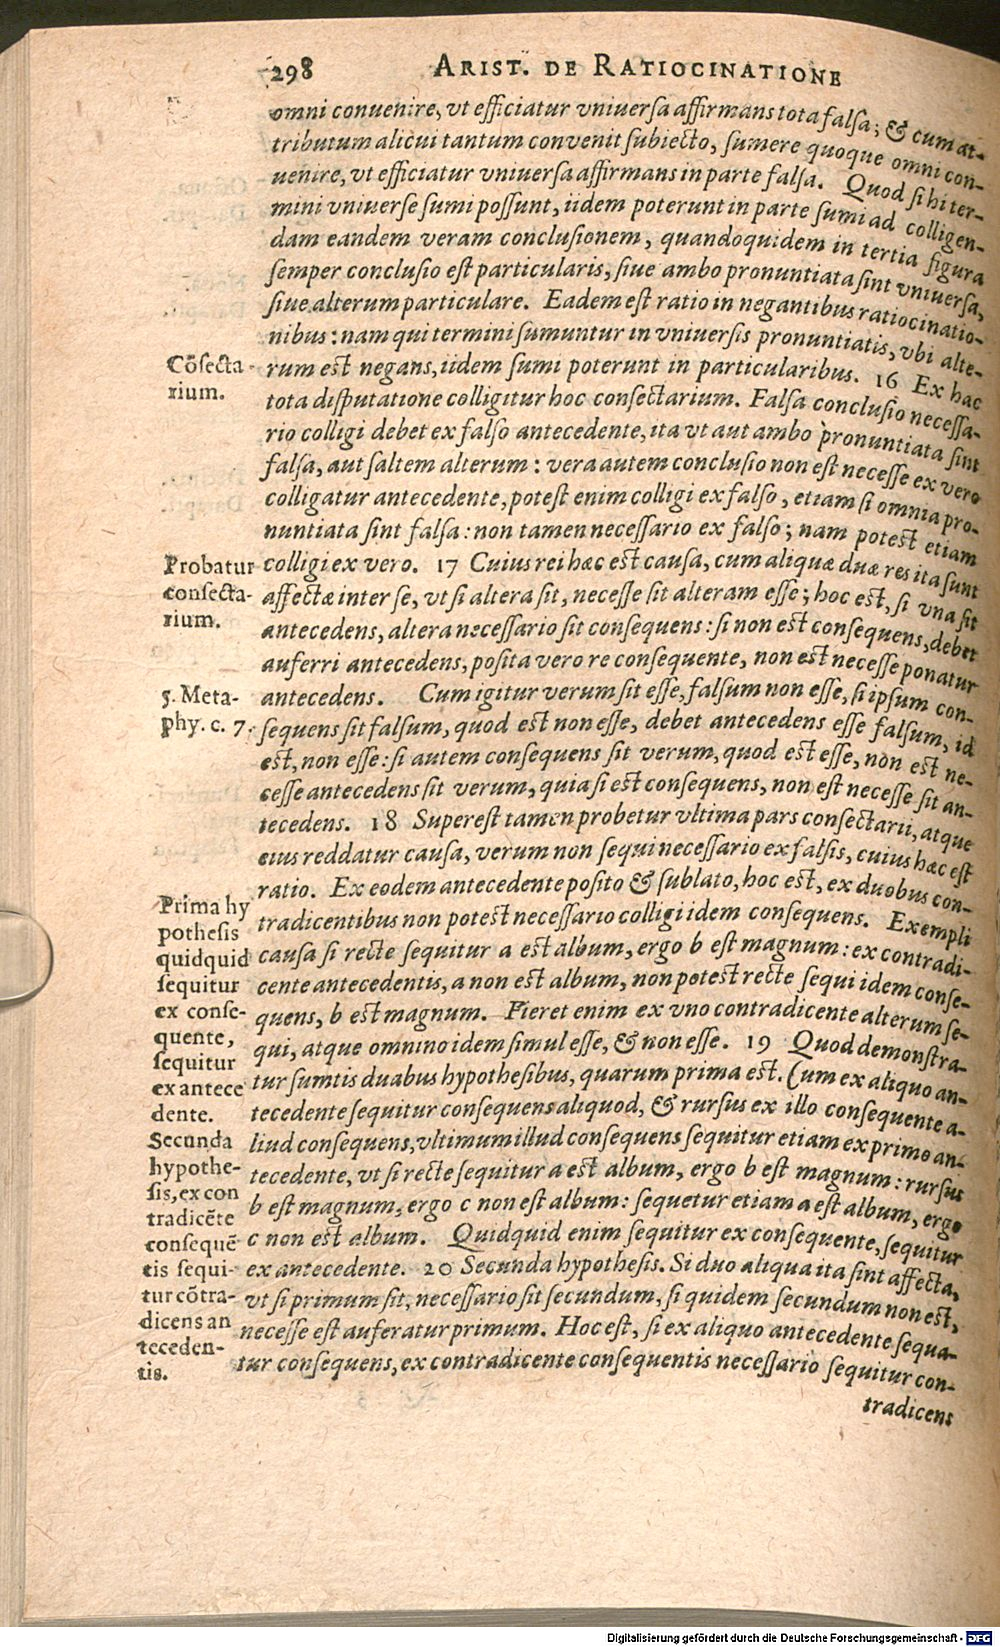 298 ARIST. DE RATIOCINATIONE
omni conuenire, vt efficiatur vniuersa affirmans tota falsa; & cum at-
tributum alicui tantum convenit subiecto, sumere quoque omni con-
uenire, vt efficiatur vniuersa affirmans in parte falsa. Quod si hi ter-
mini vniuerse sumi possunt, iidem poterunt in parte sumi ad colligen-
dam eandem veram conclusionem, quandoquidem in tertia figura
semper conclusio est particularis, siue ambo pronuntiata sint vniuersa,
siue alterum particulare. Eadem est ratio in negantibus ratiocinatio-
nibus: nam qui termini sumuntur in vniuersis pronuntiatis, vbi alte-
rum est negans, iidem sumi poterunt in particularibus. 16 Ex hac
tota disputatione colligitur hoc consectarium. Falsa conclusio necessa-
rio colligi debet ex falso antecedente, ita vt aut ambo pronuntiata sint
falsa, aut saltem alterum: vera autem conclusio non est necesse ex vero
colligatur antecedente, potest enim colligi ex falso, etiam si omnia pro-
nuntiata sint falsa: non tamen necessario ex falso; nam potest etiam
colligi ex vero. 17 Cuius rei hæc est causa, cum aliquæ duæ res ita sunt
affectæ inter se, vt si altera sit, necesse sit alteram esse; hoc est, si vna sit
antecedens, altera necessario sit consequens: si non est consequens, debet
auferri antecedens, posita vero re consequente, non est necesse ponatur
antecedens. Cum igitur verum sit esse, falsum non esse, si ipsum con-
sequens sit falsum, quod est non esse, debet antecedens esse falsum, id
est, non esse: si autem consequens sit verum, quod est esse, non est ne-
cesse antecedens sit verum, quia si est consequens, non est necesse sit an-
tecedens. 18 Superest tamen probetur vltima pars consectarii, atque
eius reddatur causa, verum non sequi necessario ex falsis, cuius hæc est
ratio. Ex eodem antecedente posito & sublato, hoc est, ex duobus con-
tradicentibus non potest necessario colligi idem consequens. Exempli
causa si recte sequitur a est album, ergo b est magnum: ex contradi-
cente antecedentis, a non est album, non potest recte sequi idem conse-
quens, b est magnum. Fieret enim ex vno contradicente alterum se-
qui, atque omnino idem simul esse, & non esse. 19 Quod demonstra-
tur sumtis duabus hypothesibus, quarum prima est. Cum ex aliquo an-
tecedente sequitur consequens aliquod, & rursus ex illo consequente a-
liud consequens, vltimum illud consequens sequitur etiam ex primo an-
tecedente, vt si recte sequitur a est album, ergo b est magnum: rursus
b est magnum, ergo c non est album: sequetur etiam a est album, ergo
c non est album. Quidquid enim sequitur ex consequente, sequitur
ex antecedente. 20 Secunda hypothesis. Si duo aliqua ita sint affecta,
vt si primum sit, necessario sit secundum, si quidem secundum non est,
necesse est auferatur primum. Hoc est, si ex aliquo antecedente sequa-
tur consequens, ex contradicente consequentis necessario sequitur con-
tradicens
Cōsecta-
rium.
Probatur
consecta-
rium.
5. Meta-
phy. c. 7.
Prima hy
pothesis
quidquid
sequitur
ex conse-
quente,
sequitur
ex antece
dente.
Secunda
hypothe-
sis, ex con
tradicēte
consequē
tis sequi-
tur cōtra-
dicens an
teceden-
tis.
Digitalisierung gefördert durch die Deutsche Forschungsgemeinschaft - DFG